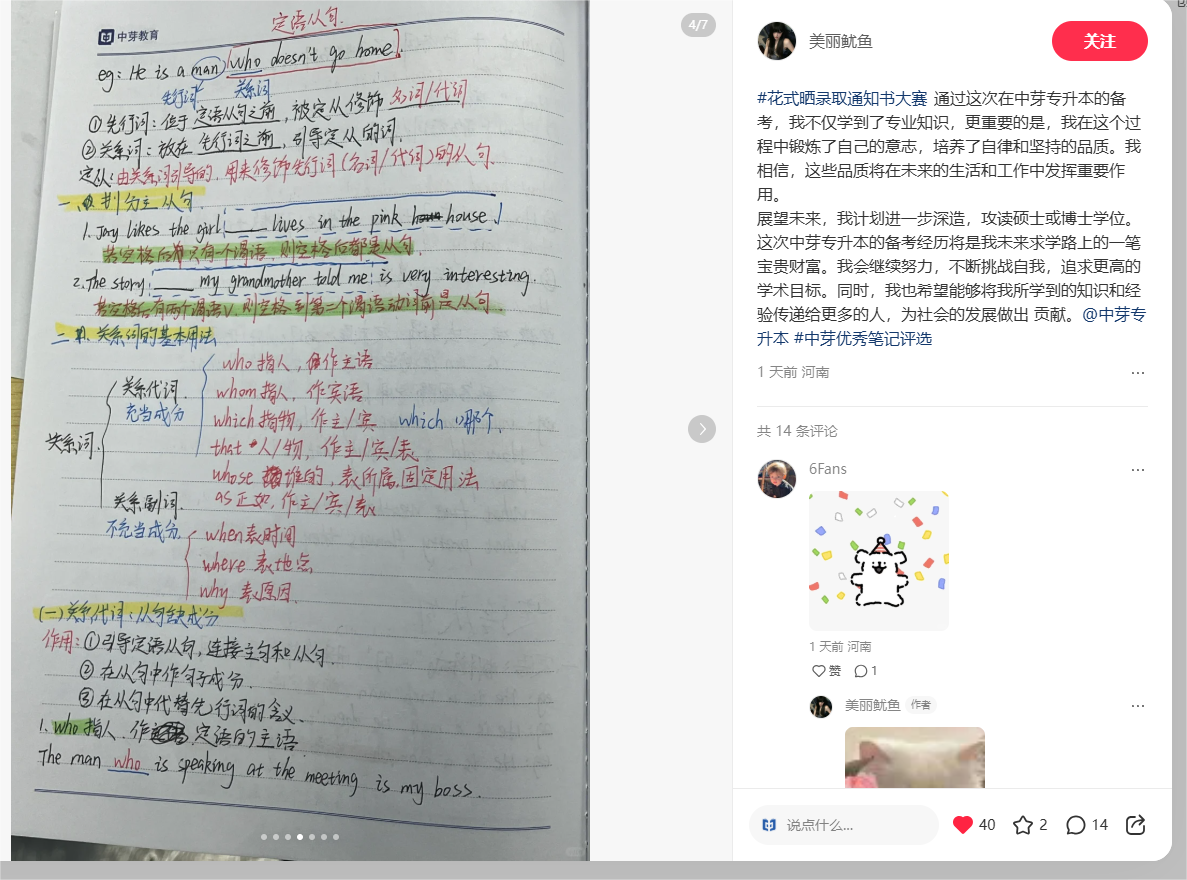 定语从句.
中芽教育
eg: He is a man who doesn't go home.
先行词 关系词
①先行词: 位于 定语从句之前, 被定从修饰 名词/代词
②关系词: 放在 先行词之前, 引导定从的词.
定从: 由关系词引导的, 用来修饰先行词(名词/代词)的从句.
一、划分主从句
1. Jary likes the girl ____ lives in the pink house.
若空格后只有一个谓语, 则空格后都是从句.
2. The story ____ my grandmother told me is very interesting.
若空格后有两个谓语v, 则空格到第二个谓语动词前是从句.
二、关系词的基本用法
who 指人, 作主语
关系代词. whom 指人, 作宾语
充当成分 which 指物, 作主/宾 which "哪个.
关系词. that 人/物, 作主/宾/表
whose 谁的, 表所属, 固定用法
关系副词. as 正如, 作主/宾/表
不充当成分 when 表时间
where 表地点
why 表原因.
(一)关系代词: 从句缺成分
作用: ①引导定语从句, 连接主句和从句.
②在从句中作句子成分.
③在从句中代替先行词的含义.
1. who 指人. 作 定语的主语
The man who is speaking at the meeting is my boss.
4/7
美丽鱿鱼
关注
#花式晒录取通知书大赛 通过这次在中芽专升本的备
考，我不仅学到了专业知识，更重要的是，我在这个过
程中锻炼了自己的意志，培养了自律和坚持的品质。我
相信，这些品质将在未来的生活和工作中发挥重要作
用。
展望未来，我计划进一步深造，攻读硕士或博士学位。
这次中芽专升本的备考经历将是我未来求学路上的一笔
宝贵财富。我会继续努力，不断挑战自我，追求更高的
学术目标。同时，我也希望能够将我所学到的知识和经
验传递给更多的人，为社会的发展做出 贡献。@中芽专
升本 #中芽优秀笔记评选
1 天前 河南
共 14 条评论
6Fans
1 天前 河南
赞 1
美丽鱿鱼 作者
说点什么... 40 2 14